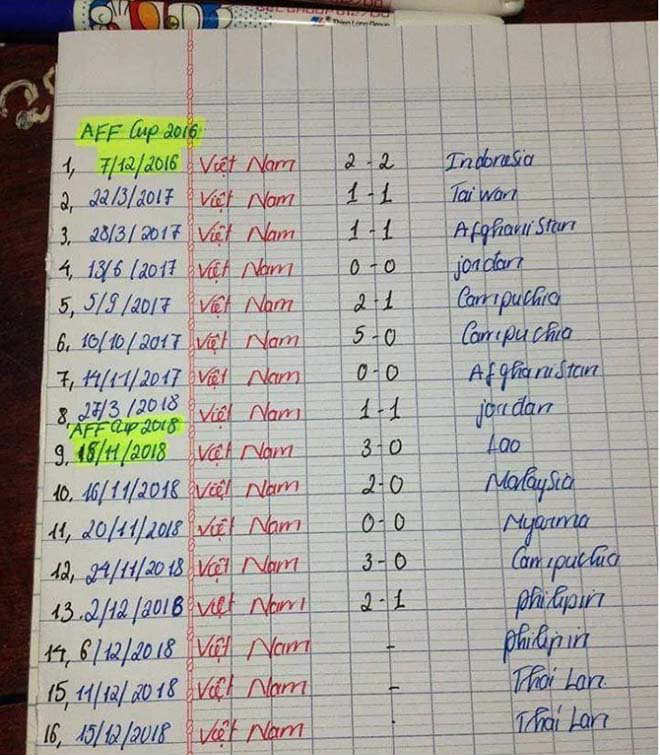 Thien Long Group
AFF Cup 2016
1, 7/12/2016 Việt Nam 2-2 Indonesia
2, 22/3/2017 Việt Nam 1-1 Tai wan
3. 28/3/2017 Việt Nam 1-1 Afghanistan
4, 13/6/2017 Việt Nam 0-0 jordan
5, 5/9/2017 Việt Nam 2-1 Campuchia
6, 10/10/2017 Việt Nam 5-0 Campuchia
7, 14/11/2017 Việt Nam 0-0 Afghanistan
8, 27/3/2018 Việt Nam 1-1 jordan
AFF Cup 2018
9. 18/11/2018 Việt Nam 3-0 Lao
10. 16/11/2018 Việt Nam 2-0 Malaysia
11, 20/11/2018 Việt Nam 0-0 Myanma
12, 24/11/2018 Việt Nam 3-0 Campuchia
13. 2/12/2018 Việt Nam 2-1 philipin
14, 6/12/2018 Việt Nam - philipin
15, 11/12/2018 Việt Nam - Thái Lan
16, 15/12/2018 Việt Nam - Thái Lan